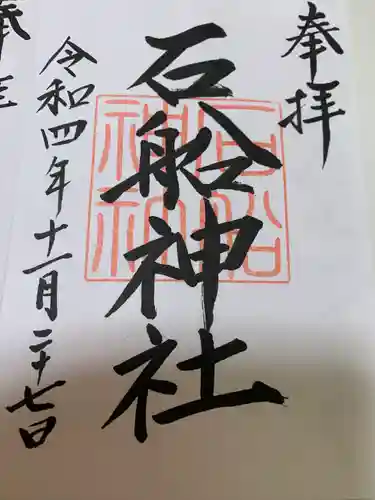 奉拝
石船神社
石船
神社
令和四年十一月二十七日
奉拝